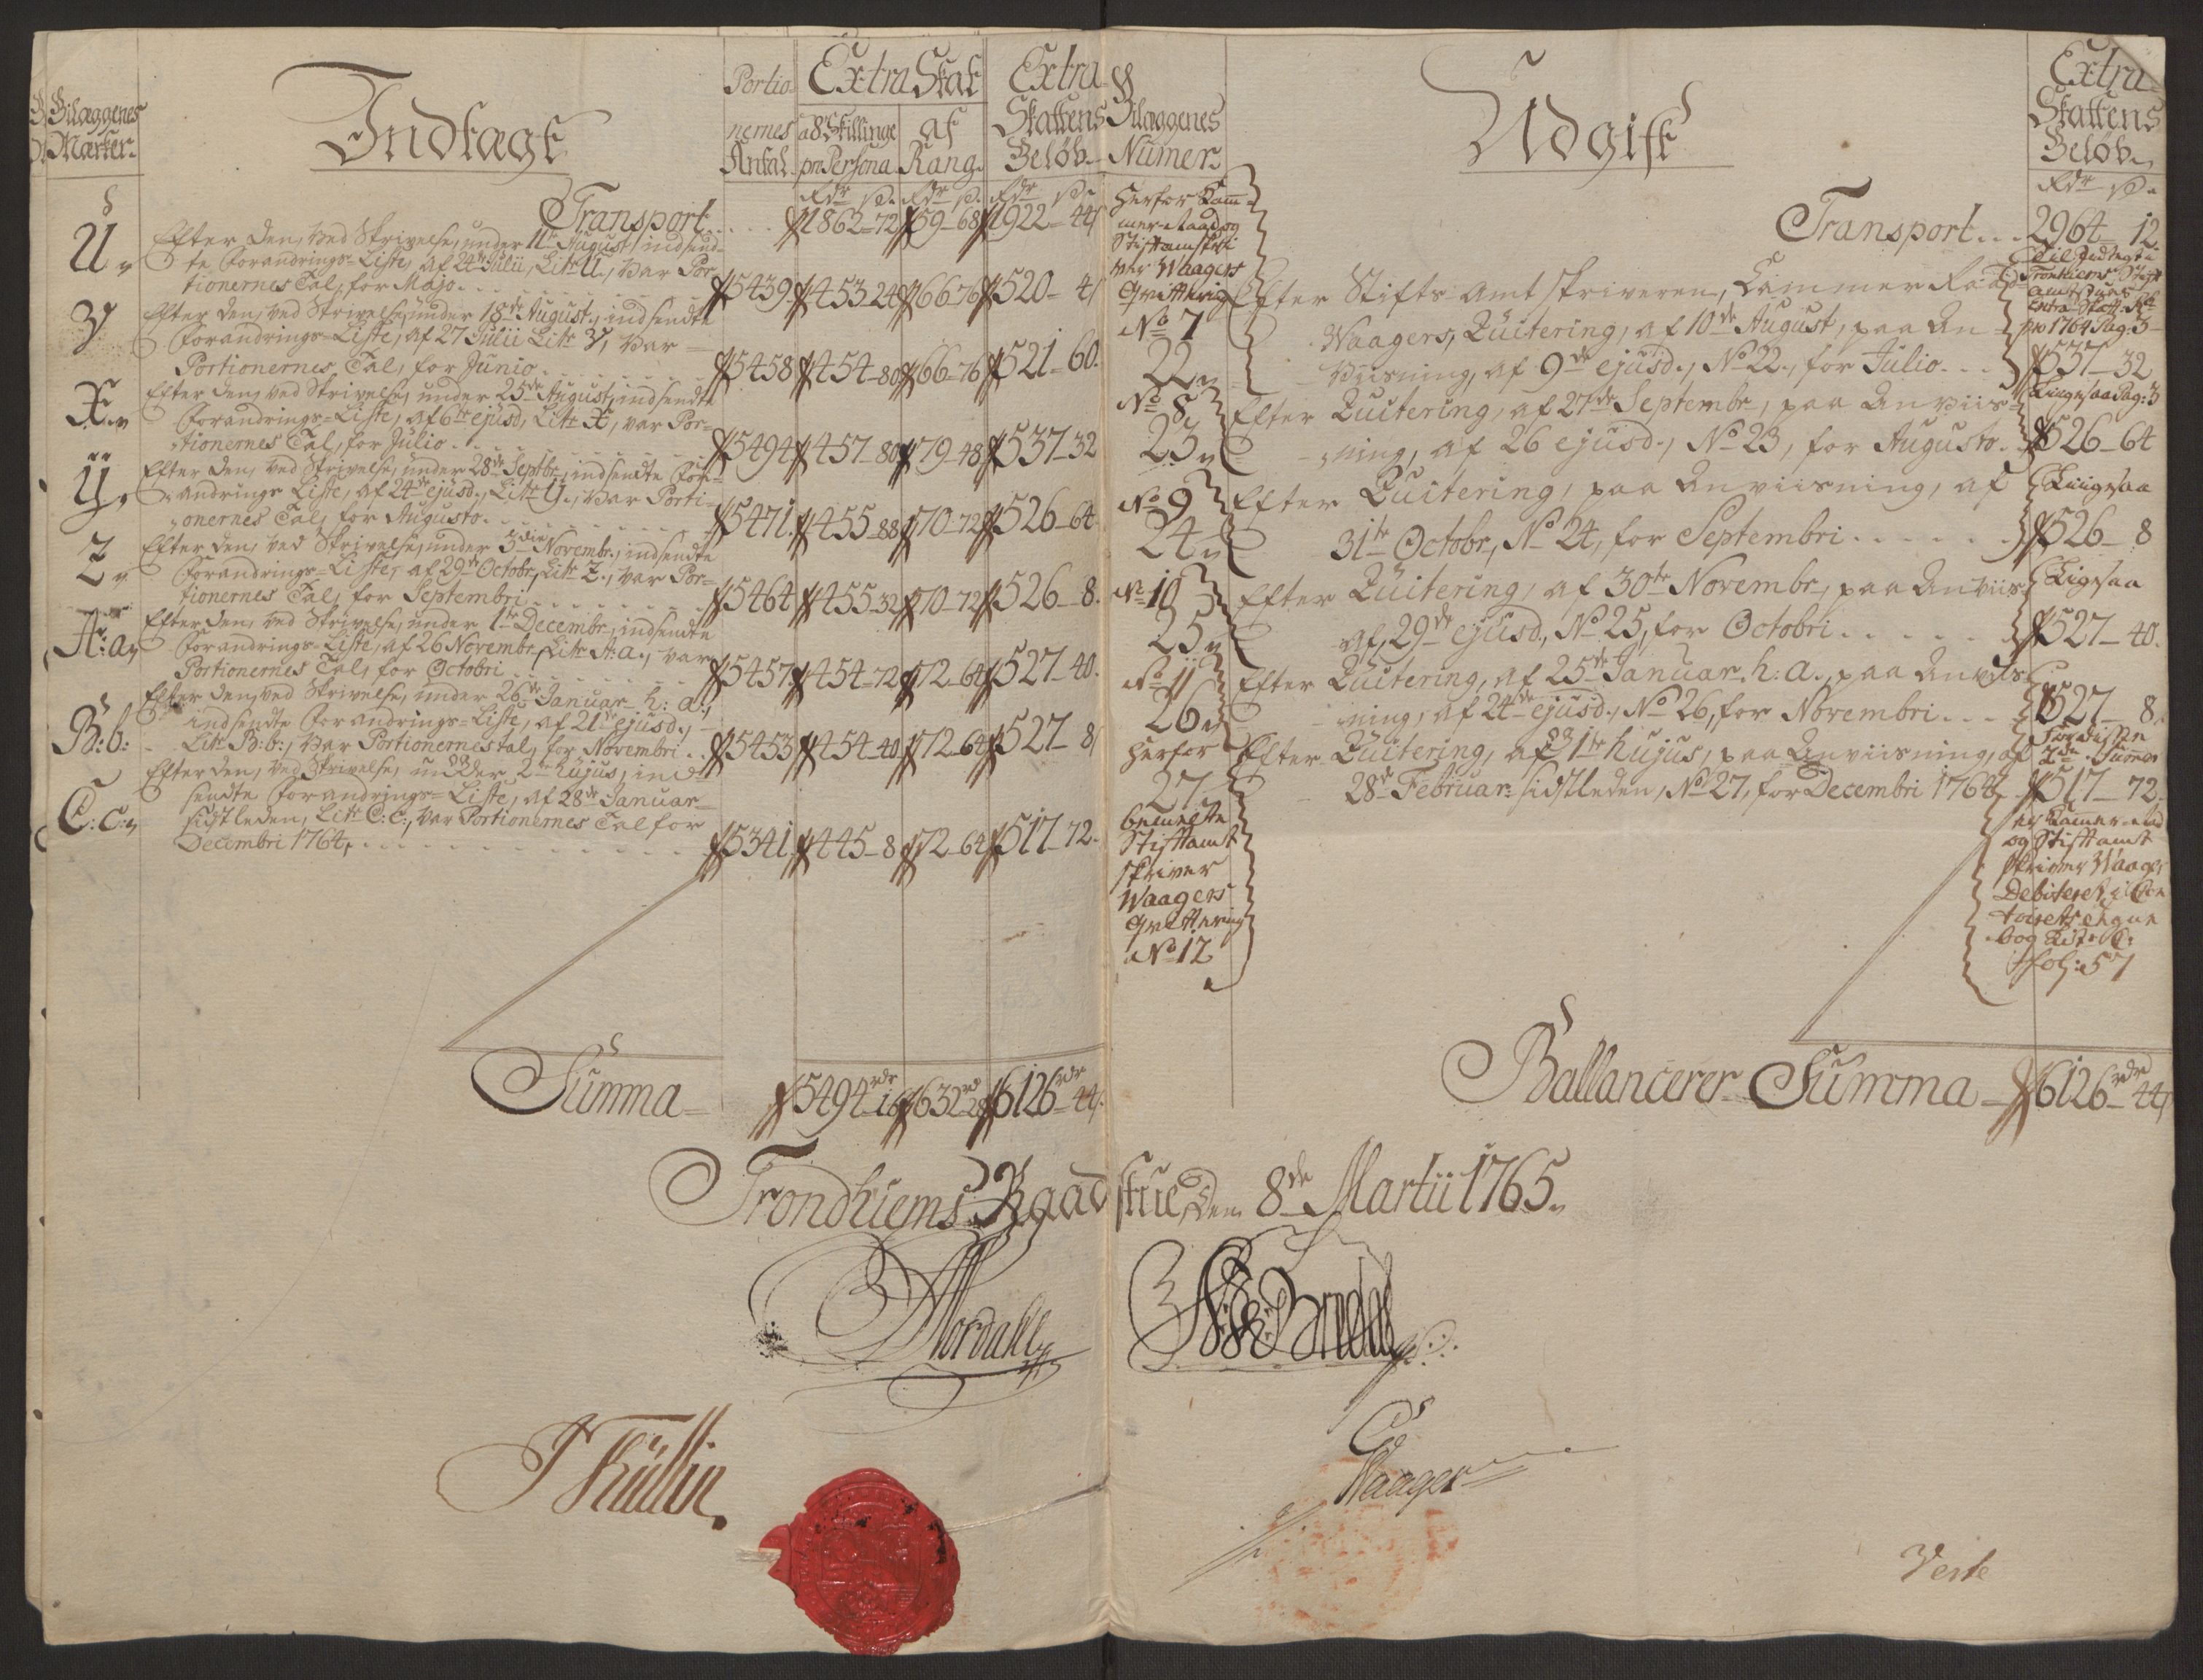 Bilaggenes
Mærker.
Indtægt
Portio-
nernes
Antal.
Extra Skat
a 8te Skillinge
pr Persona
af
Rang.
Extra
Skattens
Beløb.
Rdr ß. Rdr ß. Rdr ß.
Transport . . . . 1862-72 59-68 1922-44
U.
Efter den, ved Skrivelse, under 11te August indsend-
te Forandrings-Liste, af 24de Julii, Litr U., var Por-
tionernes Tal, for Majo . . . 5439. 453-24 66-76 520-4
V
Efter den, ved Skrivelse, under 18de August, indsendte
Forandrings-Liste, af 27 Julii Litr V, var
Portionernes, Tal, for Junio . . . 5458 454-80 66-76 521-60.
X.
Efter den, ved Skrivelse, under 25de August, indsendte
Forandrings-Liste, af 6te ejusd, Litr X, var Por-
tionernes Tal, for Julio . . . 5494 457-80 79-48 537-32
Ÿ.
Efter den, ved Skrivelse, under 28de Septbr, indsendte For-
andrings Liste, af 24de ejusd., Litr Ÿ., var Porti-
onernes Tal, for Augusto . . . 5471. 455-88 70-72 526-64
Z.
Efter den, ved Skrivelse, under 3die Novembr., indsendte
Forandrings-Liste, af 29de Octobr, Litr Z., var Por-
tionernes Tal, for Septembri . . . 5464 455-32 70-72 526-8.
A:a.
Efter den, ved Skrivelse, under 1te Decembr., indsendte
Forandrings-Liste, af 26 Novembr, Litr A:a., var
Portionernes Tal, for Octobri . . . 5457 454-72 72-64 527-40.
B:b:
Efter den, ved Skrivelse, under 26de Januar h: a:,
indsendte Forandrings-Liste, af 21de ejusd.,
Litr B:b:, var Portionernes tal, for Novembri . . 5453 454-40 72-64 527-8
C:c:
Efter den, ved Skrivelse, under 2den hujus, ind-
sendte Forandrings-Liste, af 28de Januar
sidstleden, Litr C:c:, var Portionernes Tal for
Decembri 1764, . . . 5341 445-8 72-64 517-72.
Summa 5494rdr 16 632rd 28 6126rdr 44
Bilaggenes
Numer.
Udgift
Extra
Skattens
Beløb.
Rdr ß.
Transport . . . 2964-12.
Herfor Kam-
mer-Raad og
Stiftamtskri
ver Waagers
Qvittering
No 7
22.
Efter Stifts-Amtskriveren, Cammer Raad
Waagers, Quitering, af 10de August, paa An-
viisning, af 9de ejusd., No 22., for Julio . . .
Til Indtegt i
Trondhiems Stift
amtstues
Extra-Skatt
pro 1764 Pag: 3
537-32
No 8
23.
Efter Quitering, af 27de Septembr, paa Anviis-
ning, af 26 ejusd., No 23, for Augusto . .
Liigesaa Pag: 3
526-64
No 9
24.
Efter Quitering, paa Anviisning, af
31te Octobr, No 24, for Septembri . . . . .
Liigesaa
526-8
No 10
25.
Efter Quitering, af 30te Novembr, paa Anviis-
af, 29de ejusd., No 25, for Octobri . . . . .
Ligesaa
527-40.
No 11
26.
Efter Quitering, af 25de Januar. h: a., paa Anviis-
ning, af 24de ejusd., No 26, for Novembri . . .
527-8.
Herfor
27
bemelte
Stiftamt
skriver
Waagers
Qvittering
No 12
Efter Quitering, af 1te hujus, paa Anviisning, af
28de Februar: sidstleden, No 27, for Decembri 1764
517-72.
og Stiftamt
skriver Waager
Debiteret i Con
toirets egne
bog Litr C:
Fol: 57
Ballancerer Summa 6126rdr 44
Trondhiems Raadstue, den 8de Martii 1765.
Nordahl
Bredal
J Thüllin.
C
Waager
Verte